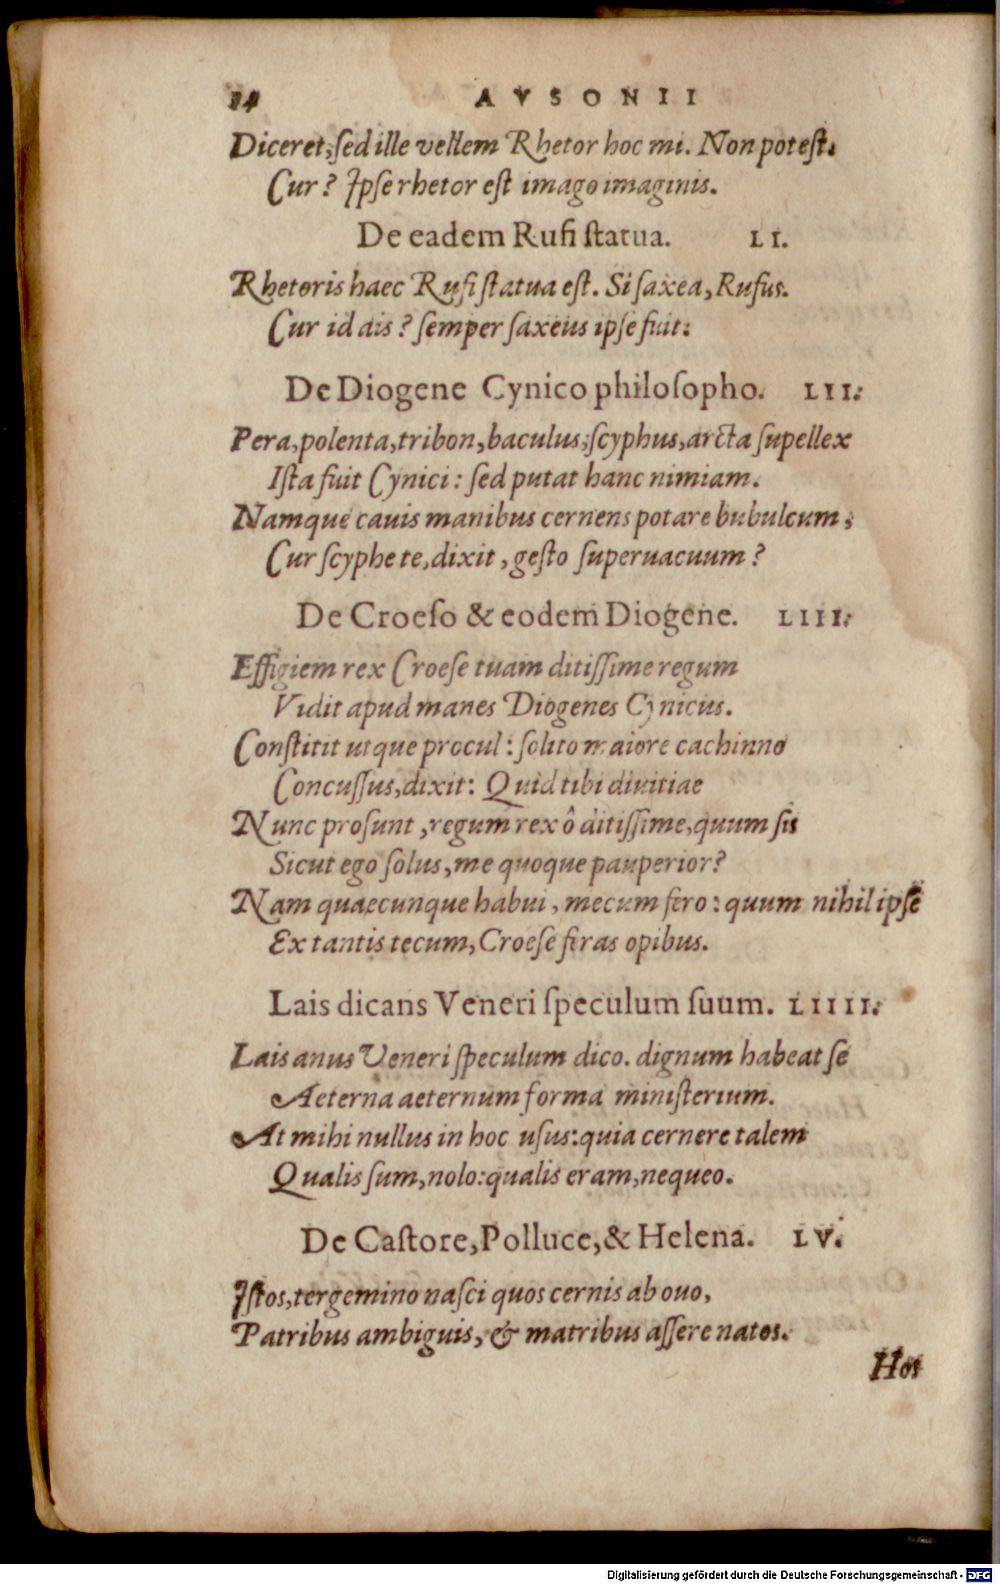 14 AVSONII
Diceret, sed ille vellem Rhetor hoc mi. Non potest.
Cur? Ipse rhetor est imago imaginis.
De eadem Rufi statua. LI.
Rhetoris haec Rufi statua est. Si saxea, Rufus.
Cur id ais? semper saxeus ipse fuit.
De Diogene Cynico philosopho. LII.
Pera, polenta, tribon, baculus, scyphus, arcta supellex
Ista fuit Cynici: sed putat hanc nimiam.
Namque cavis manibus cernens potare bubulcum,
Cur scyphe te, dixit, gesto supervacuum?
De Croeso & eodem Diogene. LIII.
Effigiem rex Croese tuam ditissime regum
Vidit apud manes Diogenes Cynicus.
Constitit utque procul: solito maiore cachinno
Concussus, dixit: Quid tibi divitiae
Nunc prosunt, regum rex ô ditissime, quum sis
Sicut ego solus, me quoque pauperior?
Nam quaecunque habui, mecum fero: quum nihil ipse
Ex tantis tecum, Croese feras opibus.
Lais dicans Veneri speculum suum. LIIII.
Lais anus Veneri speculum dico. dignum habeat se
Aeterna aeternum forma ministerium.
At mihi nullus in hoc usus: quia cernere talem
Qualis sum, nolo: qualis eram, nequeo.
De Castore, Polluce, & Helena. LV.
Istos, tergemino nasci quos cernis ab ovo,
Patribus ambiguis, & matribus assere natos.
Hos
Digitalisierung gefördert durch die Deutsche Forschungsgemeinschaft - DFG